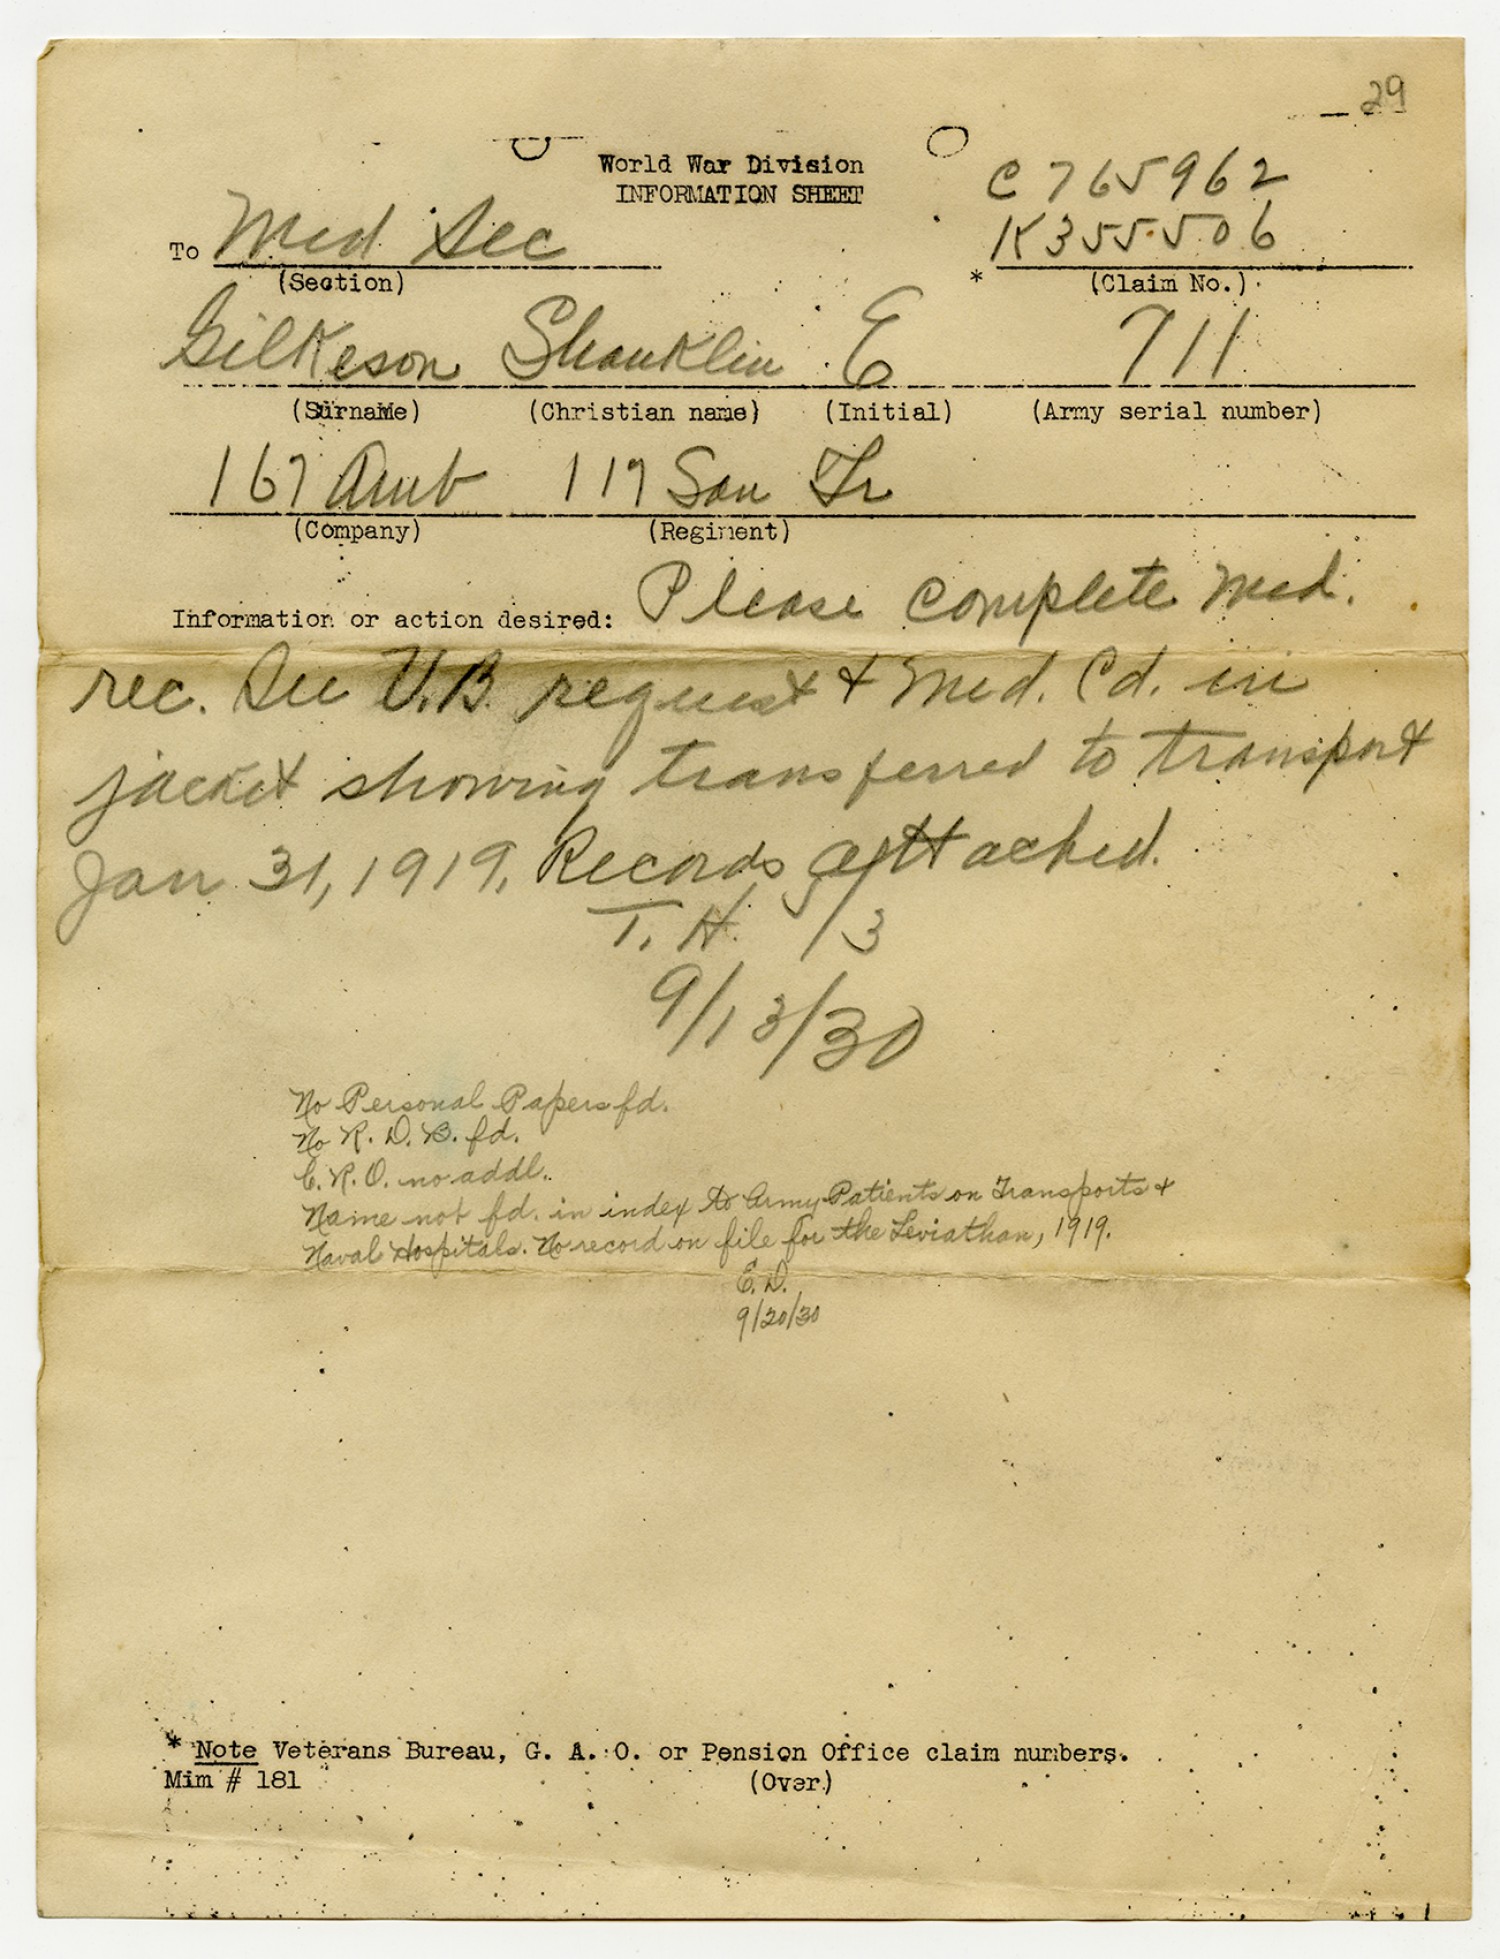 29
World War Division
INFORMATION SHEET
C 765962
K355506
To Med Sec
(Section)
* (Claim No.)
Gilkeson Shanklin E 711
(Surname) (Christian name) (Initial) (Army serial number)
167 Amb 117 San Tr
(Company) (Regiment)
Information or action desired: Please complete Med.
rec. See V.B. request & Med. Cd. in
jacket showing transferred to transport
Jan 31, 1919. Records attached.
T. H. 5/3
9/13/30
No Personal Papers fd.
No R. D. B. fd.
C. R. O. no addl.
Name not fd. in index to Army Patients on Transports &
Naval Hospitals. No record on file for the Leviathan, 1919.
E. D.
9/20/30
* Note Veterans Bureau, G. A. O. or Pension Office claim numbers.
Mim # 181 (Over)